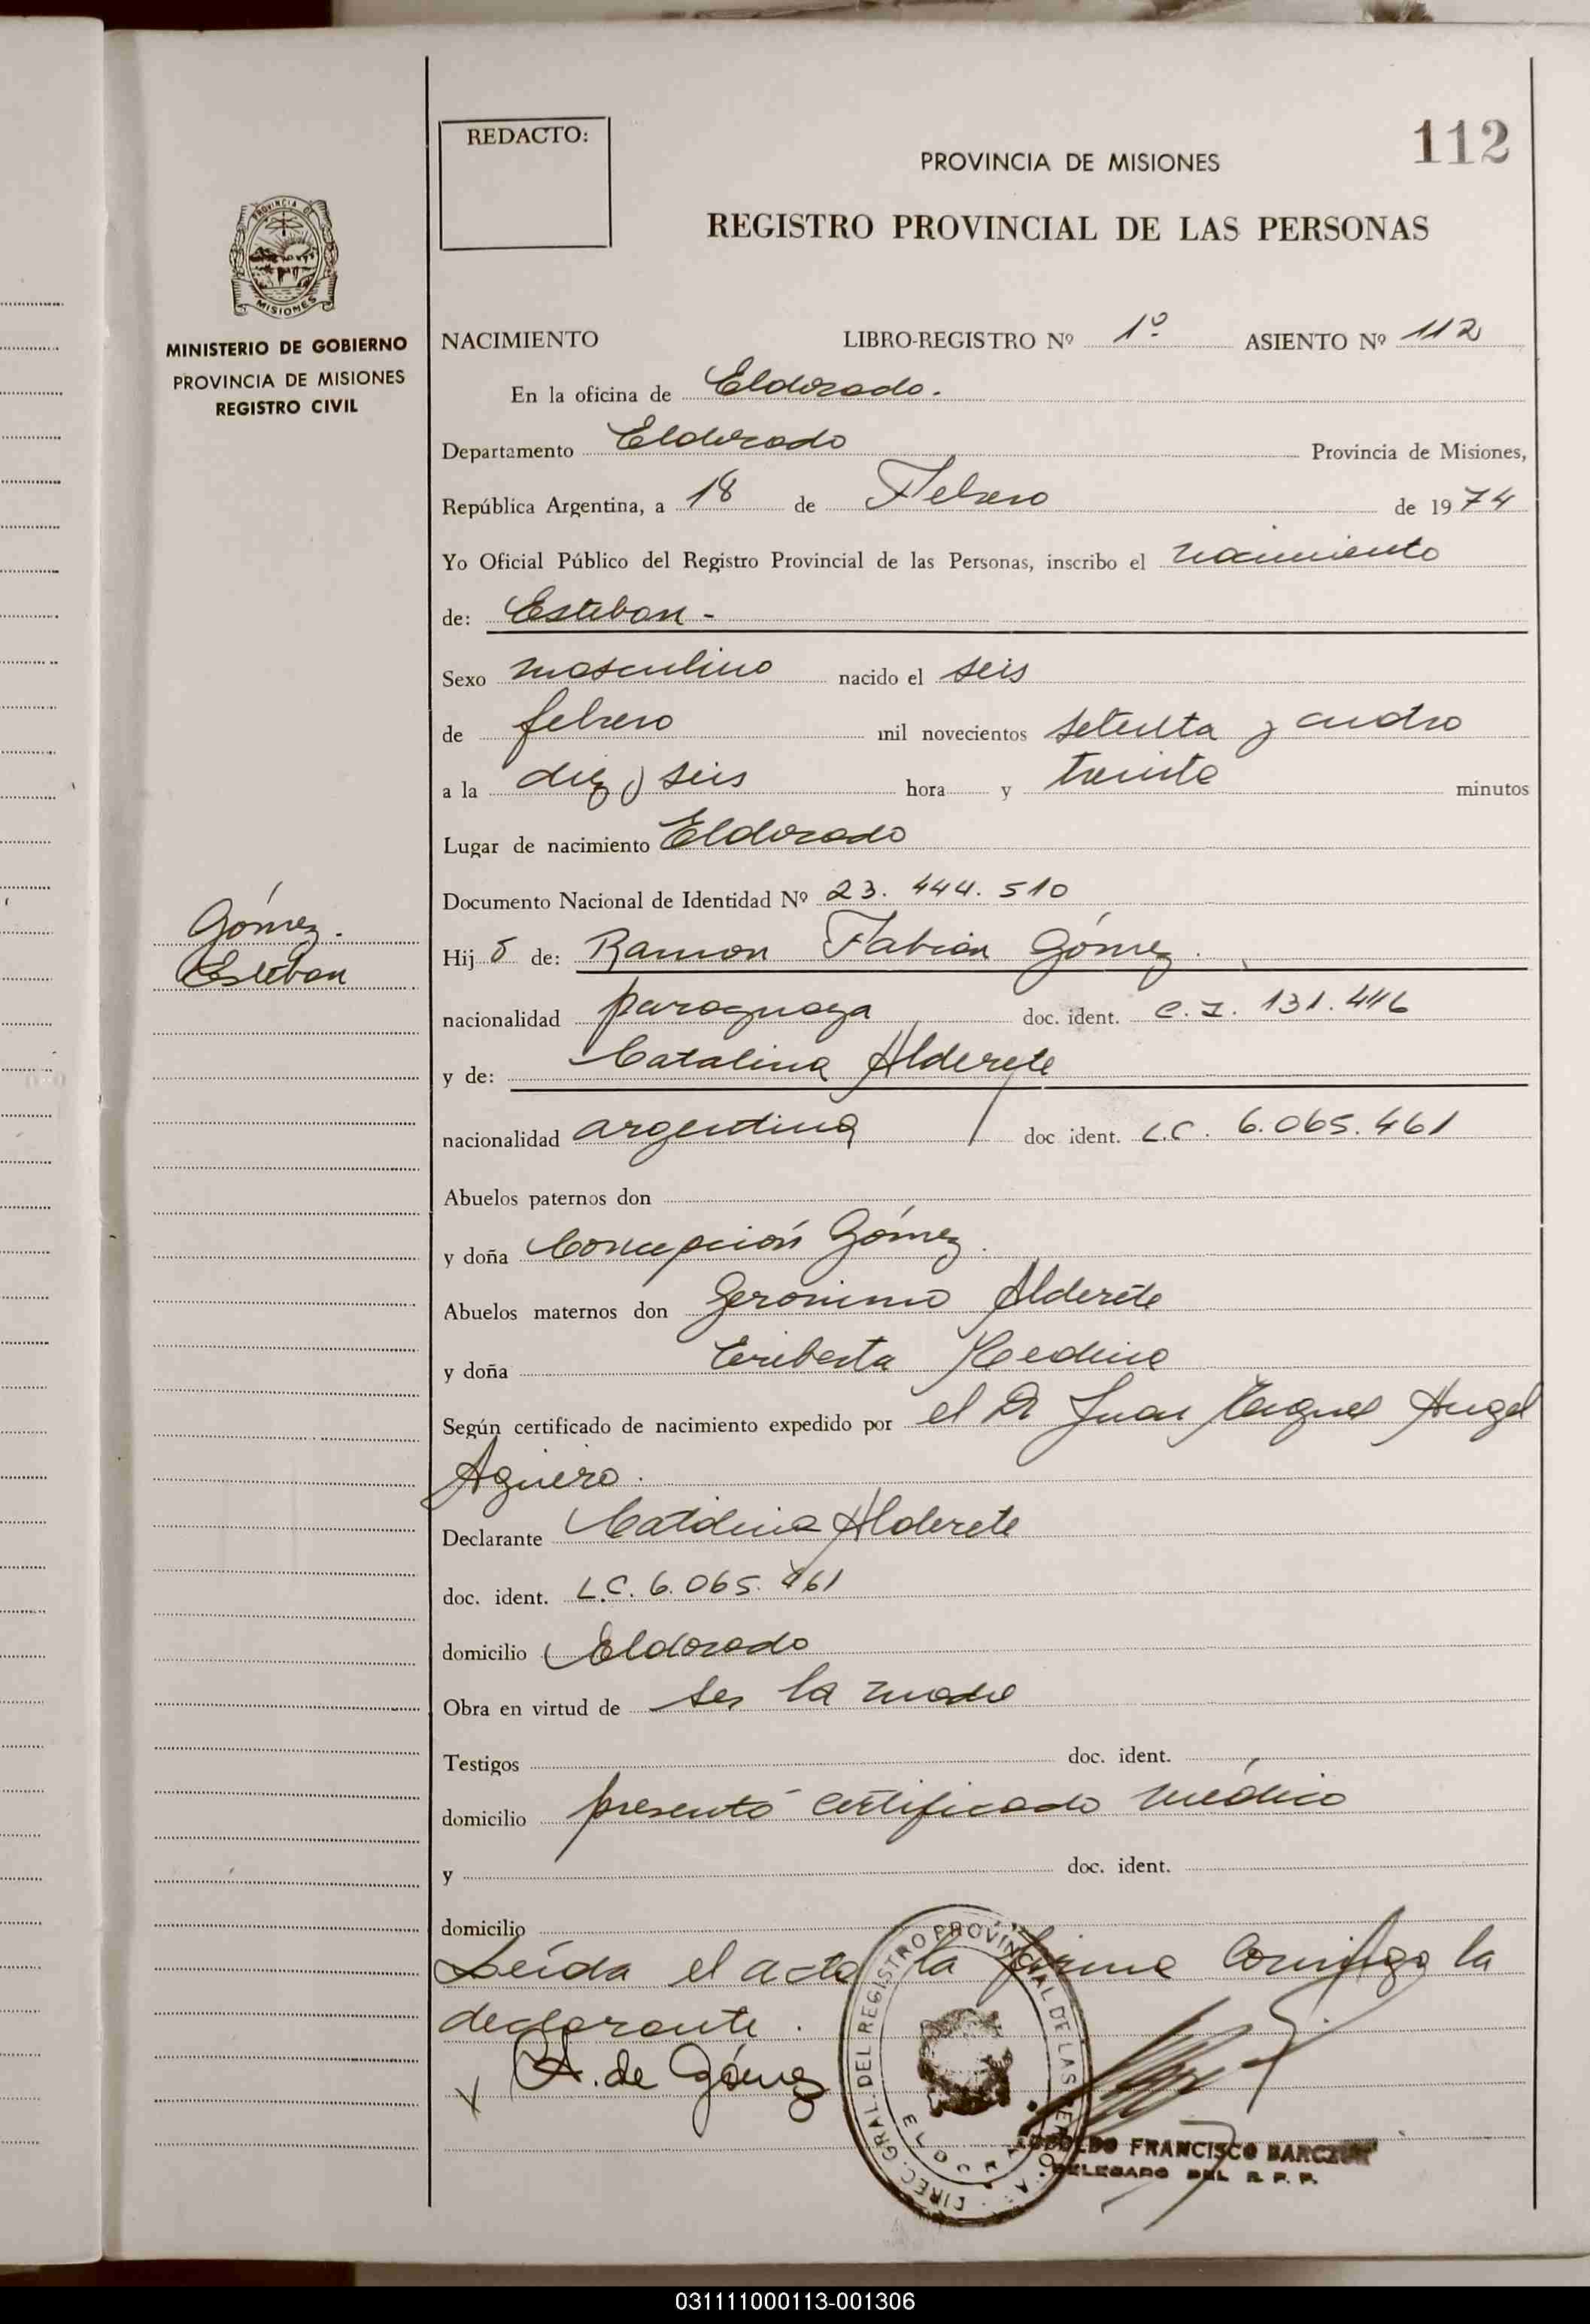 112
REDACTO:
PROVINCIA DE MISIONES
REGISTRO PROVINCIAL DE LAS PERSONAS
PROVINCIA DE
MISIONES
MINISTERIO DE GOBIERNO
PROVINCIA DE MISIONES
REGISTRO CIVIL
NACIMIENTO LIBRO-REGISTRO Nº 1º ASIENTO Nº 112
En la oficina de Eldorado.
Departamento Eldorado Provincia de Misiones,
República Argentina, a 18 de Febrero de 1974
Yo Oficial Público del Registro Provincial de las Personas, inscribo el nacimiento
de: Esteban -
Sexo masculino nacido el seis
de febrero mil novecientos setenta y cuatro
a la diez y seis hora y treinta minutos
Lugar de nacimiento Eldorado
Documento Nacional de Identidad Nº 23.444.510
Gómez.
Esteban
Hijo de: Ramon Fabián Gómez.
nacionalidad paraguaya doc. ident. C.I. 131.446
y de: Catalina Alderete
nacionalidad argentina doc ident. L.C. 6.065.461
Abuelos paternos don
y doña Concepción Gómez.
Abuelos maternos don Geronimo Alderete
y doña Eriberta Medina
Según certificado de nacimiento expedido por el Dr Juan Angel
Aguero.
Declarante Catalina Alderete
doc. ident. L.C. 6.065.461
domicilio Eldorado
Obra en virtud de ser la madre
Testigos doc. ident.
domicilio presentó certificado médico
y doc. ident.
domicilio
Leída el acta la firma conmigo la
declarante.
x A. de Gómez
DIREC. GRAL. DEL REGISTRO PROVINCIAL DE LAS
FRANCISCO
DELEGADO DEL R. P. P.
031111000113-001306